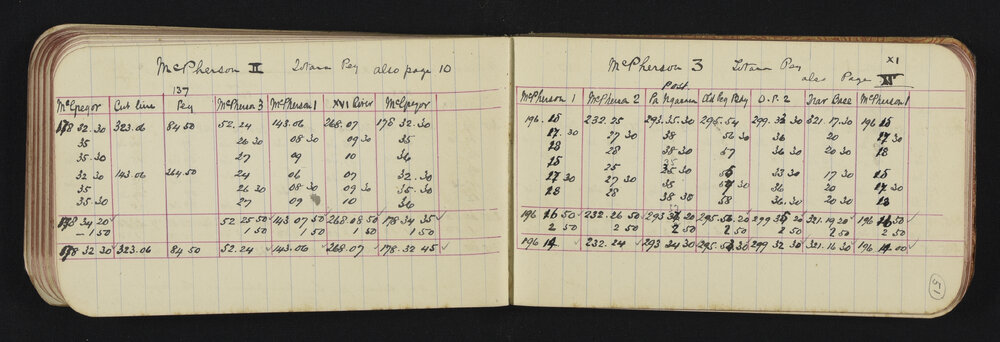 McPherson II Totara Peg also page 10
137
McGregor Cut line Peg McPherson 3 McPherson 1 XVI River McGregor
178 32.30 323.06 84 50 52.24 143.06 268.07 178 32.30
35 26 30 08 30 09 30 35
35.30 27 09 10 36
32 30 143.06 264.50 24 06 07 32.30
35 26 30 08 30 09 30 35.30
35.30 27 09 10 36
178 34 20 52 25 50 143 07 50 268 08 50 178 34 35
- 1 50 1 50 1 50 1 50 1 50
178 32 30 323.06 84 50 52.24 143.06 268.07 178.32 45
McPherson 3 Totara Peg XI
also Page
Post
McPherson 1 McPherson 2 Pa Ngaruru Old Peg D.P. 2 Star Base McPherson 1
196 15 232.25 293.35.30 295.54 299.33.30 321.17.30 196 15
17.30 27 30 38 56 30 36 20 17 30
18 28 38.30 57 36 30 20 30 18
15 25 35 30 33 30 17 30 15
17 30 27 30 38 36 20 17.30
18 28 38 30 58 36.30 20 30 18
196 16 50 232.26 50 293 37 20 295.56.20 299 35 20 321.19 20 196 16 50
2 50 2 50 2 50 2 50 2 50 2 50 2 50
196 14 232.24 293 34 30 299 32 30 321.16 30 196 14 00
51